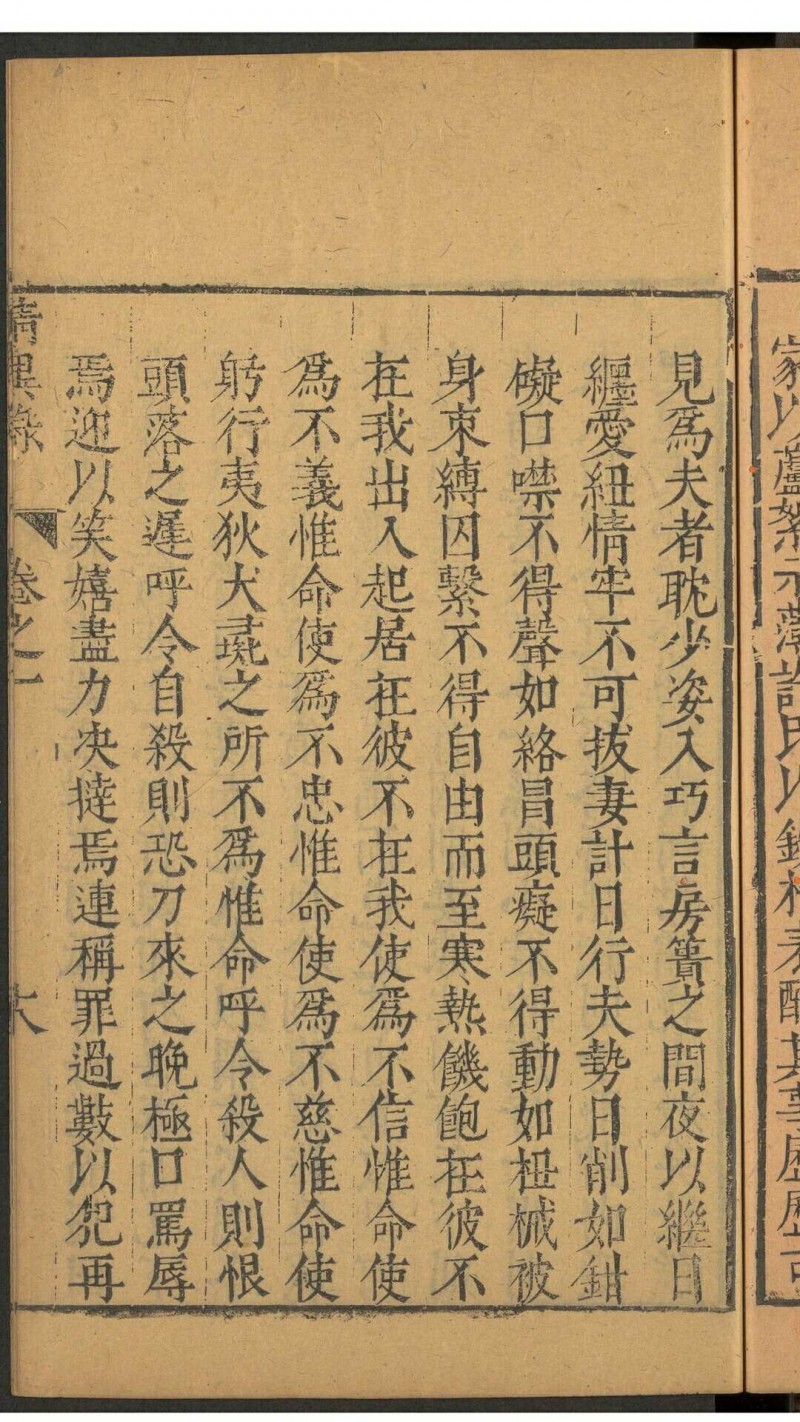 家以蘆絮示薄許氏以鐵杵表酷其事歷歷可
見爲夫者耽少姿入巧言房簀之間夜以繼日
纏愛紐情牢不可拔妻計日行夫勢日削如鉗
礙口噤不得聲如絡冒頭癡不得動如杻械被
身束縛囚繫不得自由而至寒熱饑飽在彼不
在我出入起居在彼不在我使爲不信惟命使
爲不義惟命使爲不忠惟命使爲不慈惟命使
躬行夷狄犬彘之所不爲惟命呼令殺人則恨
頭落之遲呼令自殺則恐刀來之晚極口罵辱
焉迎以笑嬉盡力抰撻焉連稱罪過數以兇再
清異錄
卷之一
六